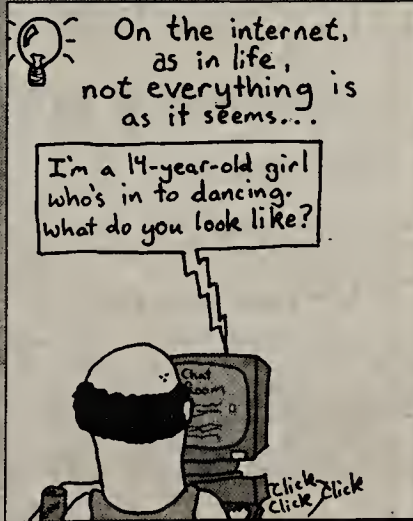 On the internet,
as in life,
not everything is
as it seems...
I'm a 14-year-old girl
who's in to dancing.
What do you look like?
Chat
Room
Click
Click
Click